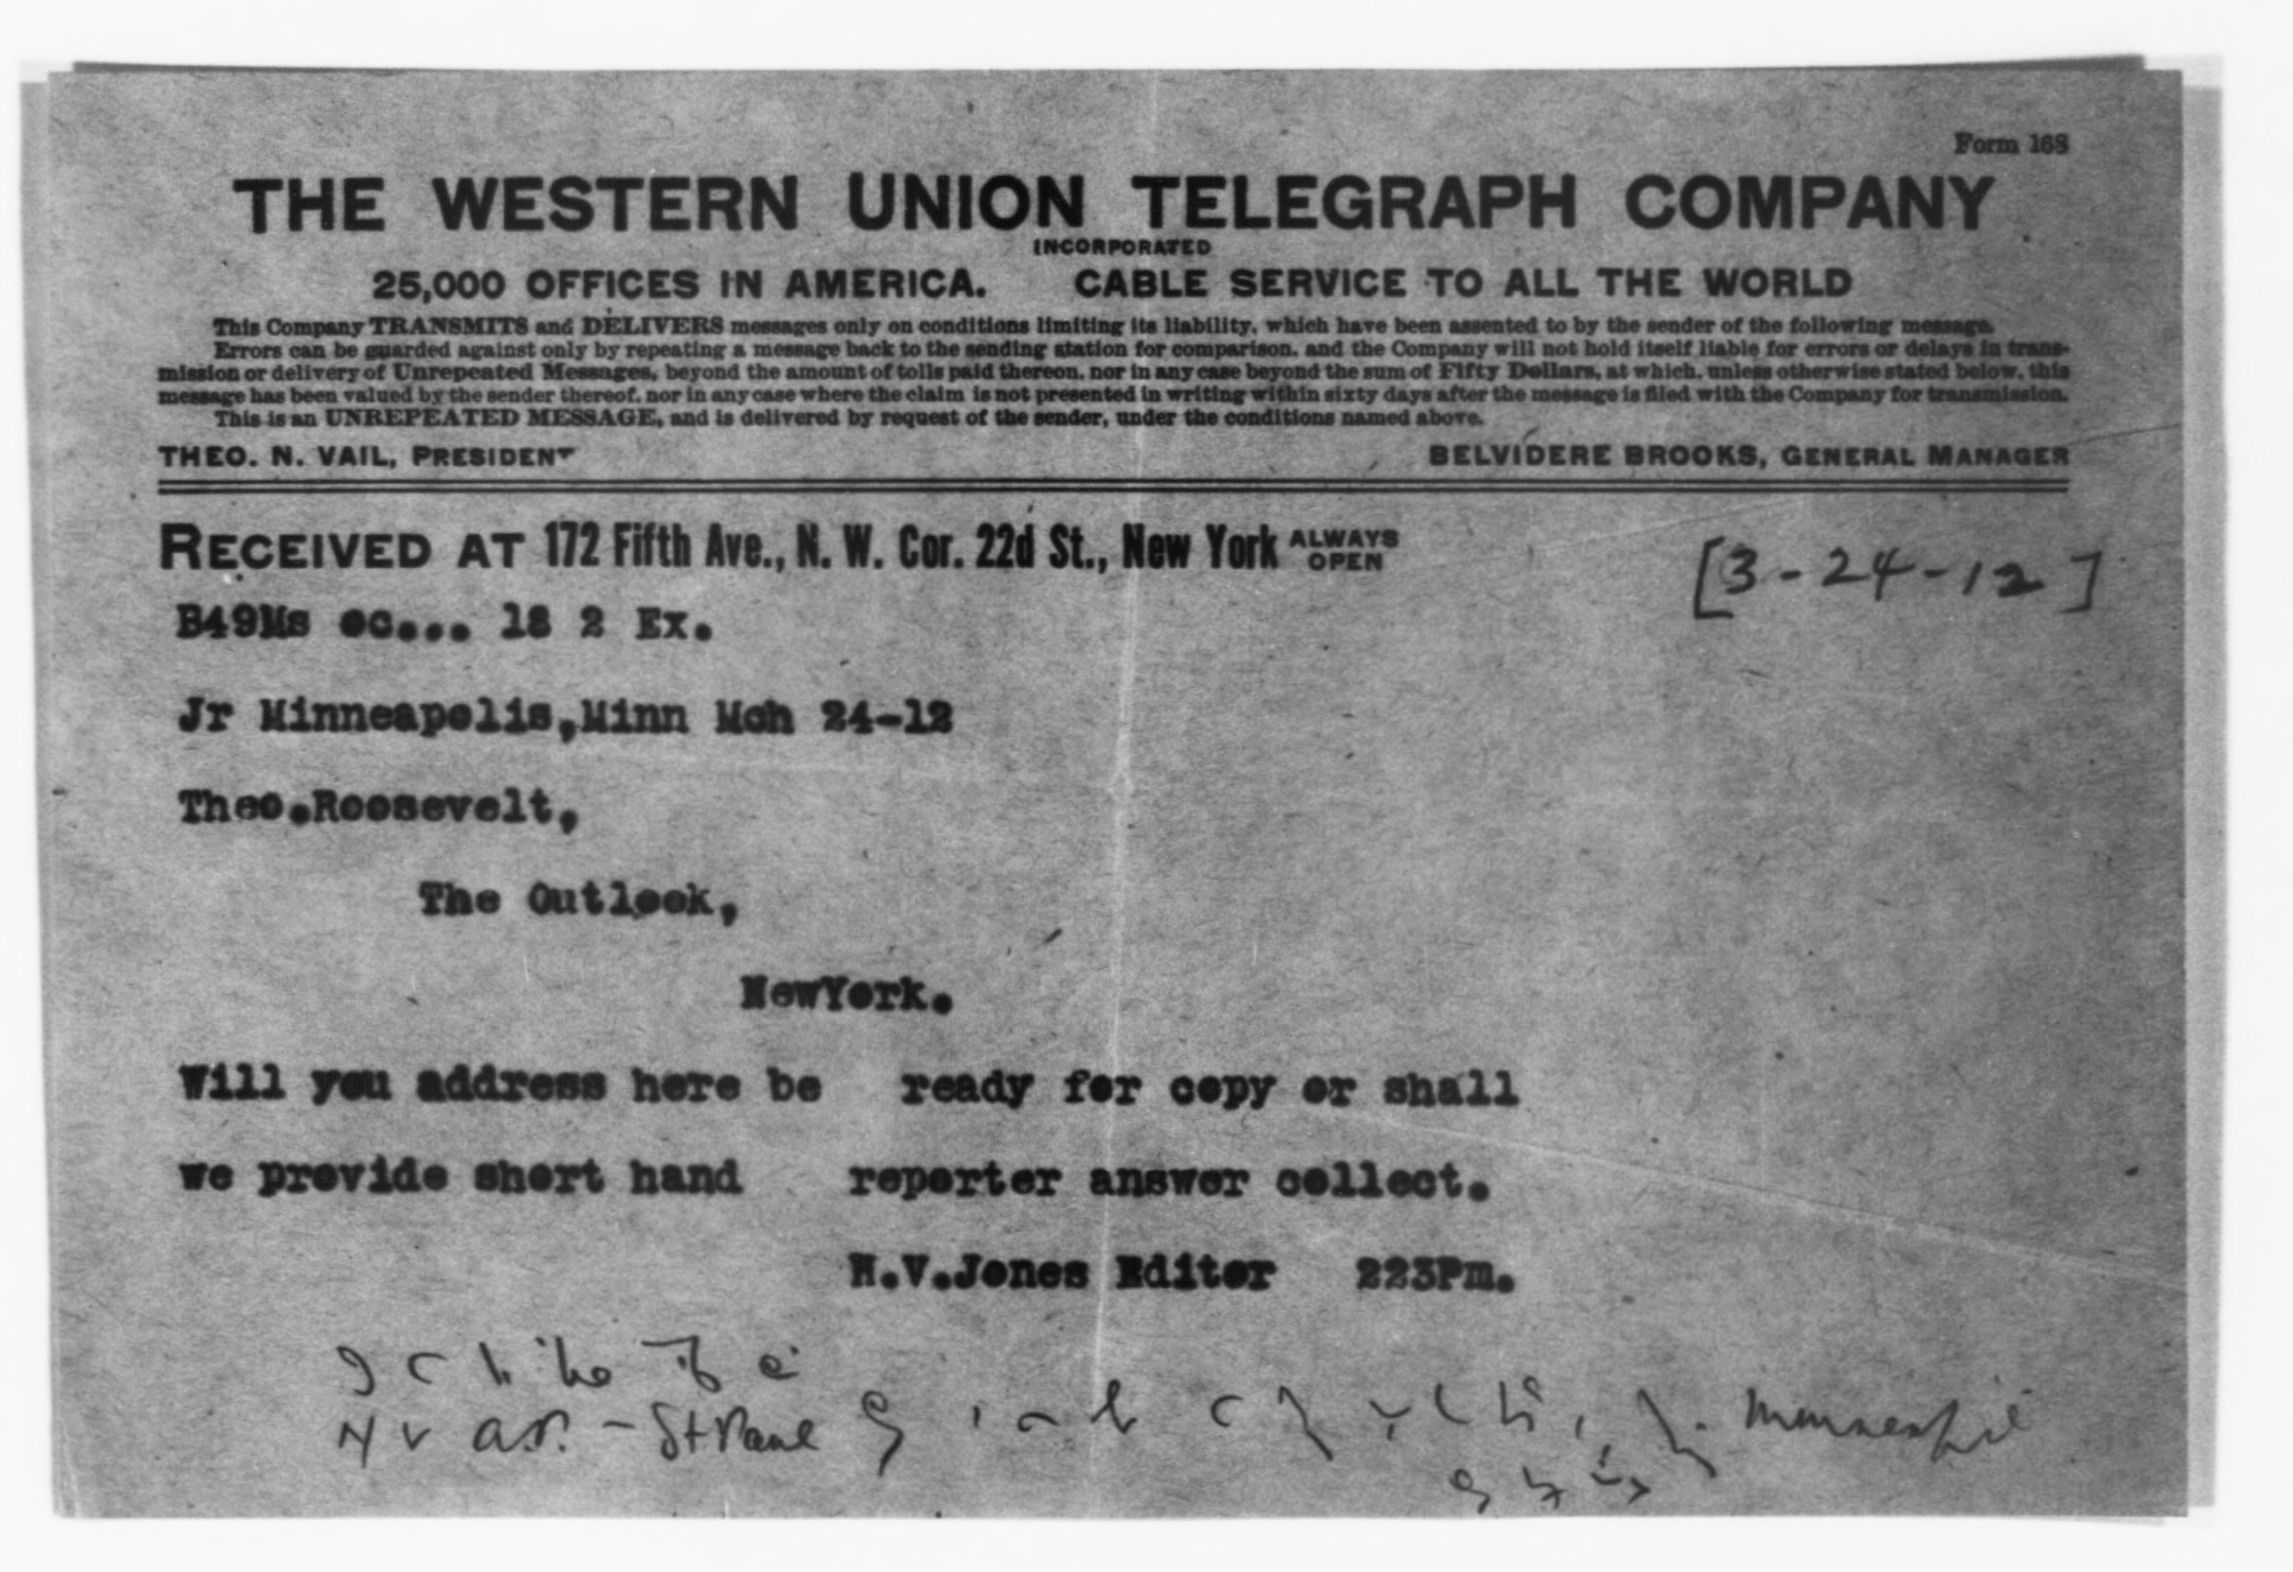 Form 168
THE WESTERN UNION TELEGRAPH COMPANY
INCORPORATED
25,000 OFFICES IN AMERICA. CABLE SERVICE TO ALL THE WORLD
This Company TRANSMITS and DELIVERS messages only on conditions limiting its liability, which have been assented to by the sender of the following message.
Errors can be guarded against only by repeating a message back to the sending station for comparison, and the Company will not hold itself liable for errors or delays in trans-
mission or delivery of Unrepeated Messages, beyond the amount of tolls paid thereon, nor in any case beyond the sum of Fifty Dollars, at which, unless otherwise stated below, this
message has been valued by the sender thereof, nor in any case where the claim is not presented in writing within sixty days after the message is filed with the Company for transmission.
This is an UNREPEATED MESSAGE, and is delivered by request of the sender, under the conditions named above.
THEO. N. VAIL, PRESIDENT BELVIDERE BROOKS, GENERAL MANAGER
RECEIVED AT 172 Fifth Ave., N. W. Cor. 22d St., New York ALWAYS OPEN
[3-24-12]
B49Ms oc... 18 2 Ex.
Jr Minneapolis,Minn Mch 24-12
Theo.Roosevelt,
The Outlook,
NewYork.
Will you address here be ready for copy or shall
we provide short hand reporter answer collect.
W.V.Jones Editor 223Pm.
a.p. - St Paul